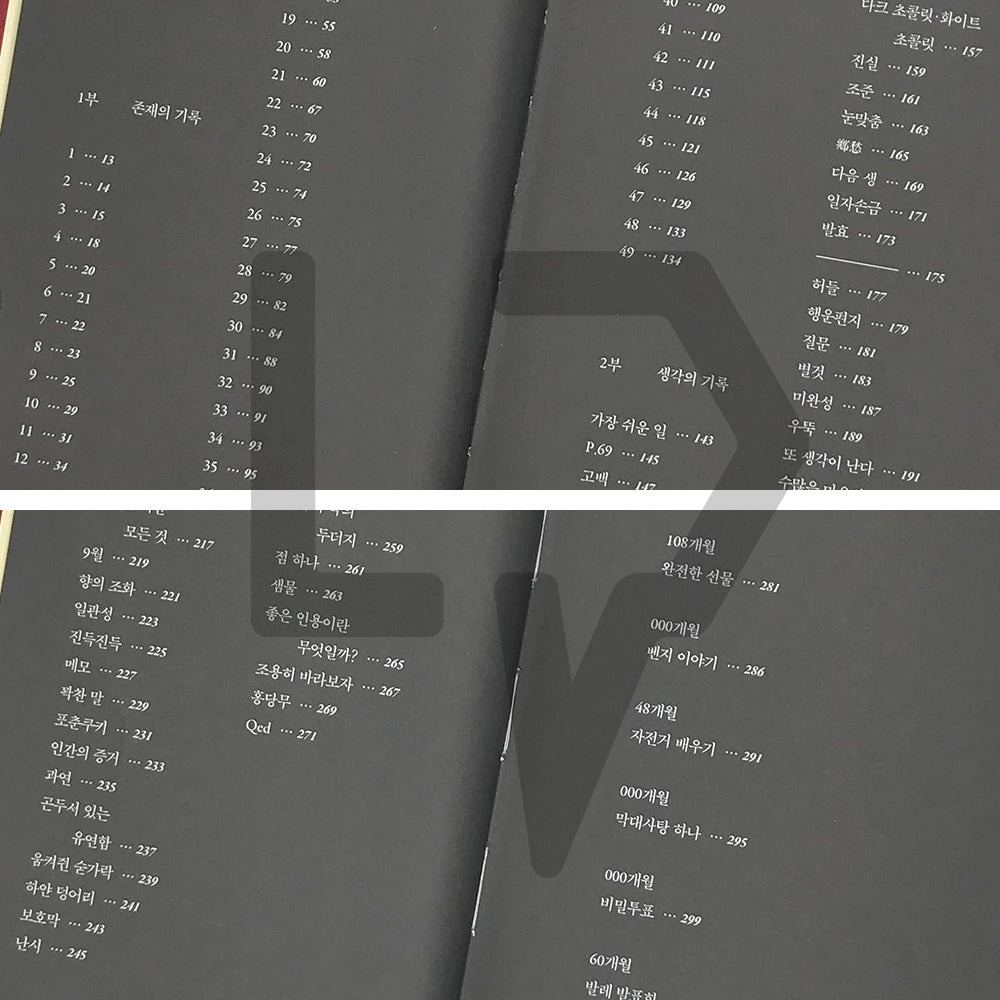 1부 존재의 기록
1 ··· 13
2 ··· 14
3 ··· 15
4 ··· 18
5 ··· 20
6 ··· 21
7 ··· 22
8 ··· 23
9 ··· 25
10 ··· 29
11 ··· 31
12 ··· 34
19 ··· 55
20 ··· 58
21 ··· 60
22 ··· 67
23 ··· 70
24 ··· 72
25 ··· 74
26 ··· 75
27 ··· 77
28 ··· 79
29 ··· 82
30 ··· 84
31 ··· 88
32 ··· 90
33 ··· 91
34 ··· 93
35 ··· 95
40 ··· 109
41 ··· 110
42 ··· 111
43 ··· 115
44 ··· 118
45 ··· 121
46 ··· 126
47 ··· 129
48 ··· 133
49 ··· 134
2부 생각의 기록
가장 쉬운 일 ··· 143
P.69 ··· 145
고백 ··· 147
다크 초콜릿·화이트
초콜릿 ··· 157
진실 ··· 159
조준 ··· 161
눈맞춤 ··· 163
鄕愁 ··· 165
다음 생 ··· 169
일자손금 ··· 171
발효 ··· 173
――― ··· 175
허들 ··· 177
행운편지 ··· 179
질문 ··· 181
별것 ··· 183
미완성 ··· 187
우뚝 ··· 189
또 생각이 난다 ··· 191
수많은
모든 것 ··· 217
9월 ··· 219
향의 조화 ··· 221
일관성 ··· 223
진득진득 ··· 225
메모 ··· 227
꽉찬 말 ··· 229
포춘쿠키 ··· 231
인간의 증거 ··· 233
과연 ··· 235
곤두서 있는
유연함 ··· 237
움켜쥔 숟가락 ··· 239
하얀 덩어리 ··· 241
보호막 ··· 243
난시 ··· 245
두더지 ··· 259
점 하나 ··· 261
샘물 ··· 263
좋은 인용이란
무엇일까? ··· 265
조용히 바라보자 ··· 267
홍당무 ··· 269
Qed ··· 271
108개월
완전한 선물 ··· 281
000개월
벤지 이야기 ··· 286
48개월
자전거 배우기 ··· 291
000개월
막대사탕 하나 ··· 295
000개월
비밀투표 ··· 299
60개월
발레 발표회